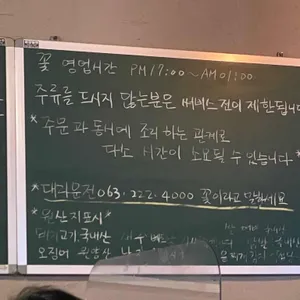 꽃 영업시간 PM17:00~AM01:00
주류를 드시지 않는분은 써비스전이 제한됩니다
*주문과 동시에 조리하는 관계로
다소 시간이 소요될 수 있습니다*
*대리운전 063.222.4000 꽃이라고 말씀하세요
*원산지표시*
돼지고기.국내산
오징어 원양산